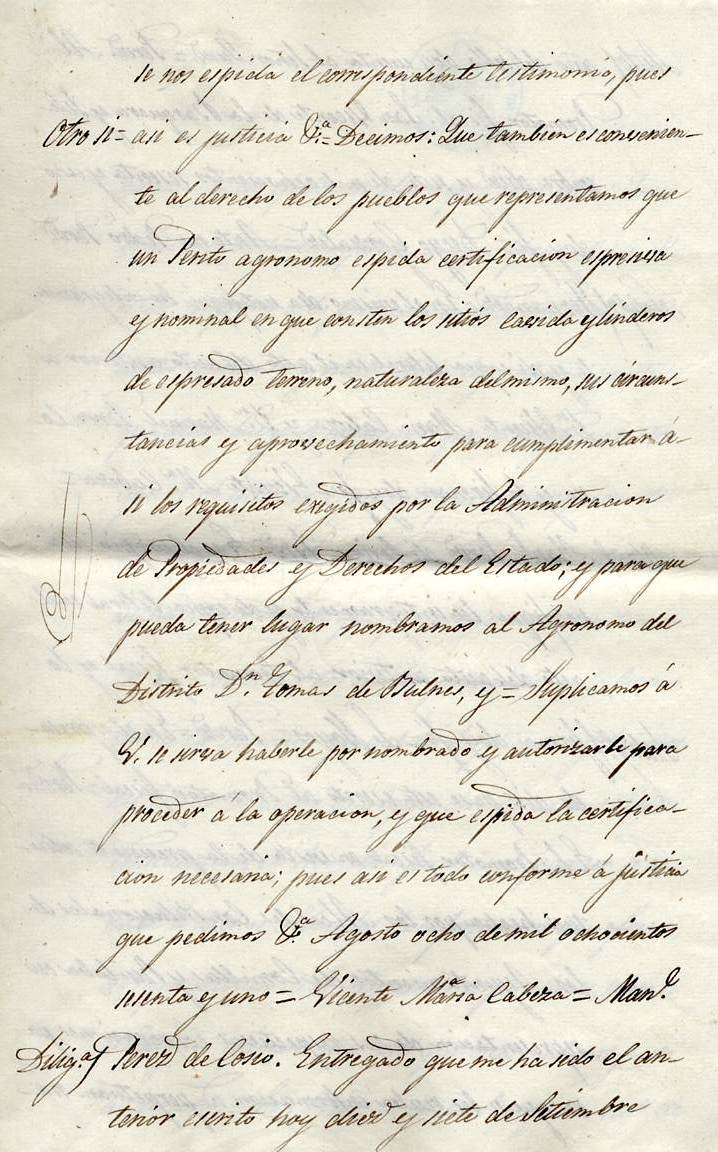 se nos espida el correspondiente testimonio, pues
Otro si = asi es justicia &.ª = Decimos: Que tambien es convenien-
te al derecho de los pueblos que representamos que
un Perito agronomo espida certificacion espresiva
y nominal en que consten los sitios cavida y linderos
de espresado terreno, naturaleza del mismo, sus circuns-
tancias y aprovechamiento para cumplimentar á-
si los requisitos exigidos por la Administracion
de Propiedades y Derechos del Estado; y para que
pueda tener lugar nombramos al Agronomo del
Distrito D.n Tomas de Bulnes, y = Suplicamos á
V. se sirva haberle por nombrado y autorizarle para
proceder á la operacion, y que espida la certifica-
cion necesaria; pues asi es todo conforme á justicia
que pedimos &.ª Agosto ocho de mil ochocientos
sesenta y uno = Vicente Maria Cabeza = Man.l
Dilig.a Perez de Cosio. Entregado que me ha sido el an-
terior escrito hoy diez y siete de Setiembre